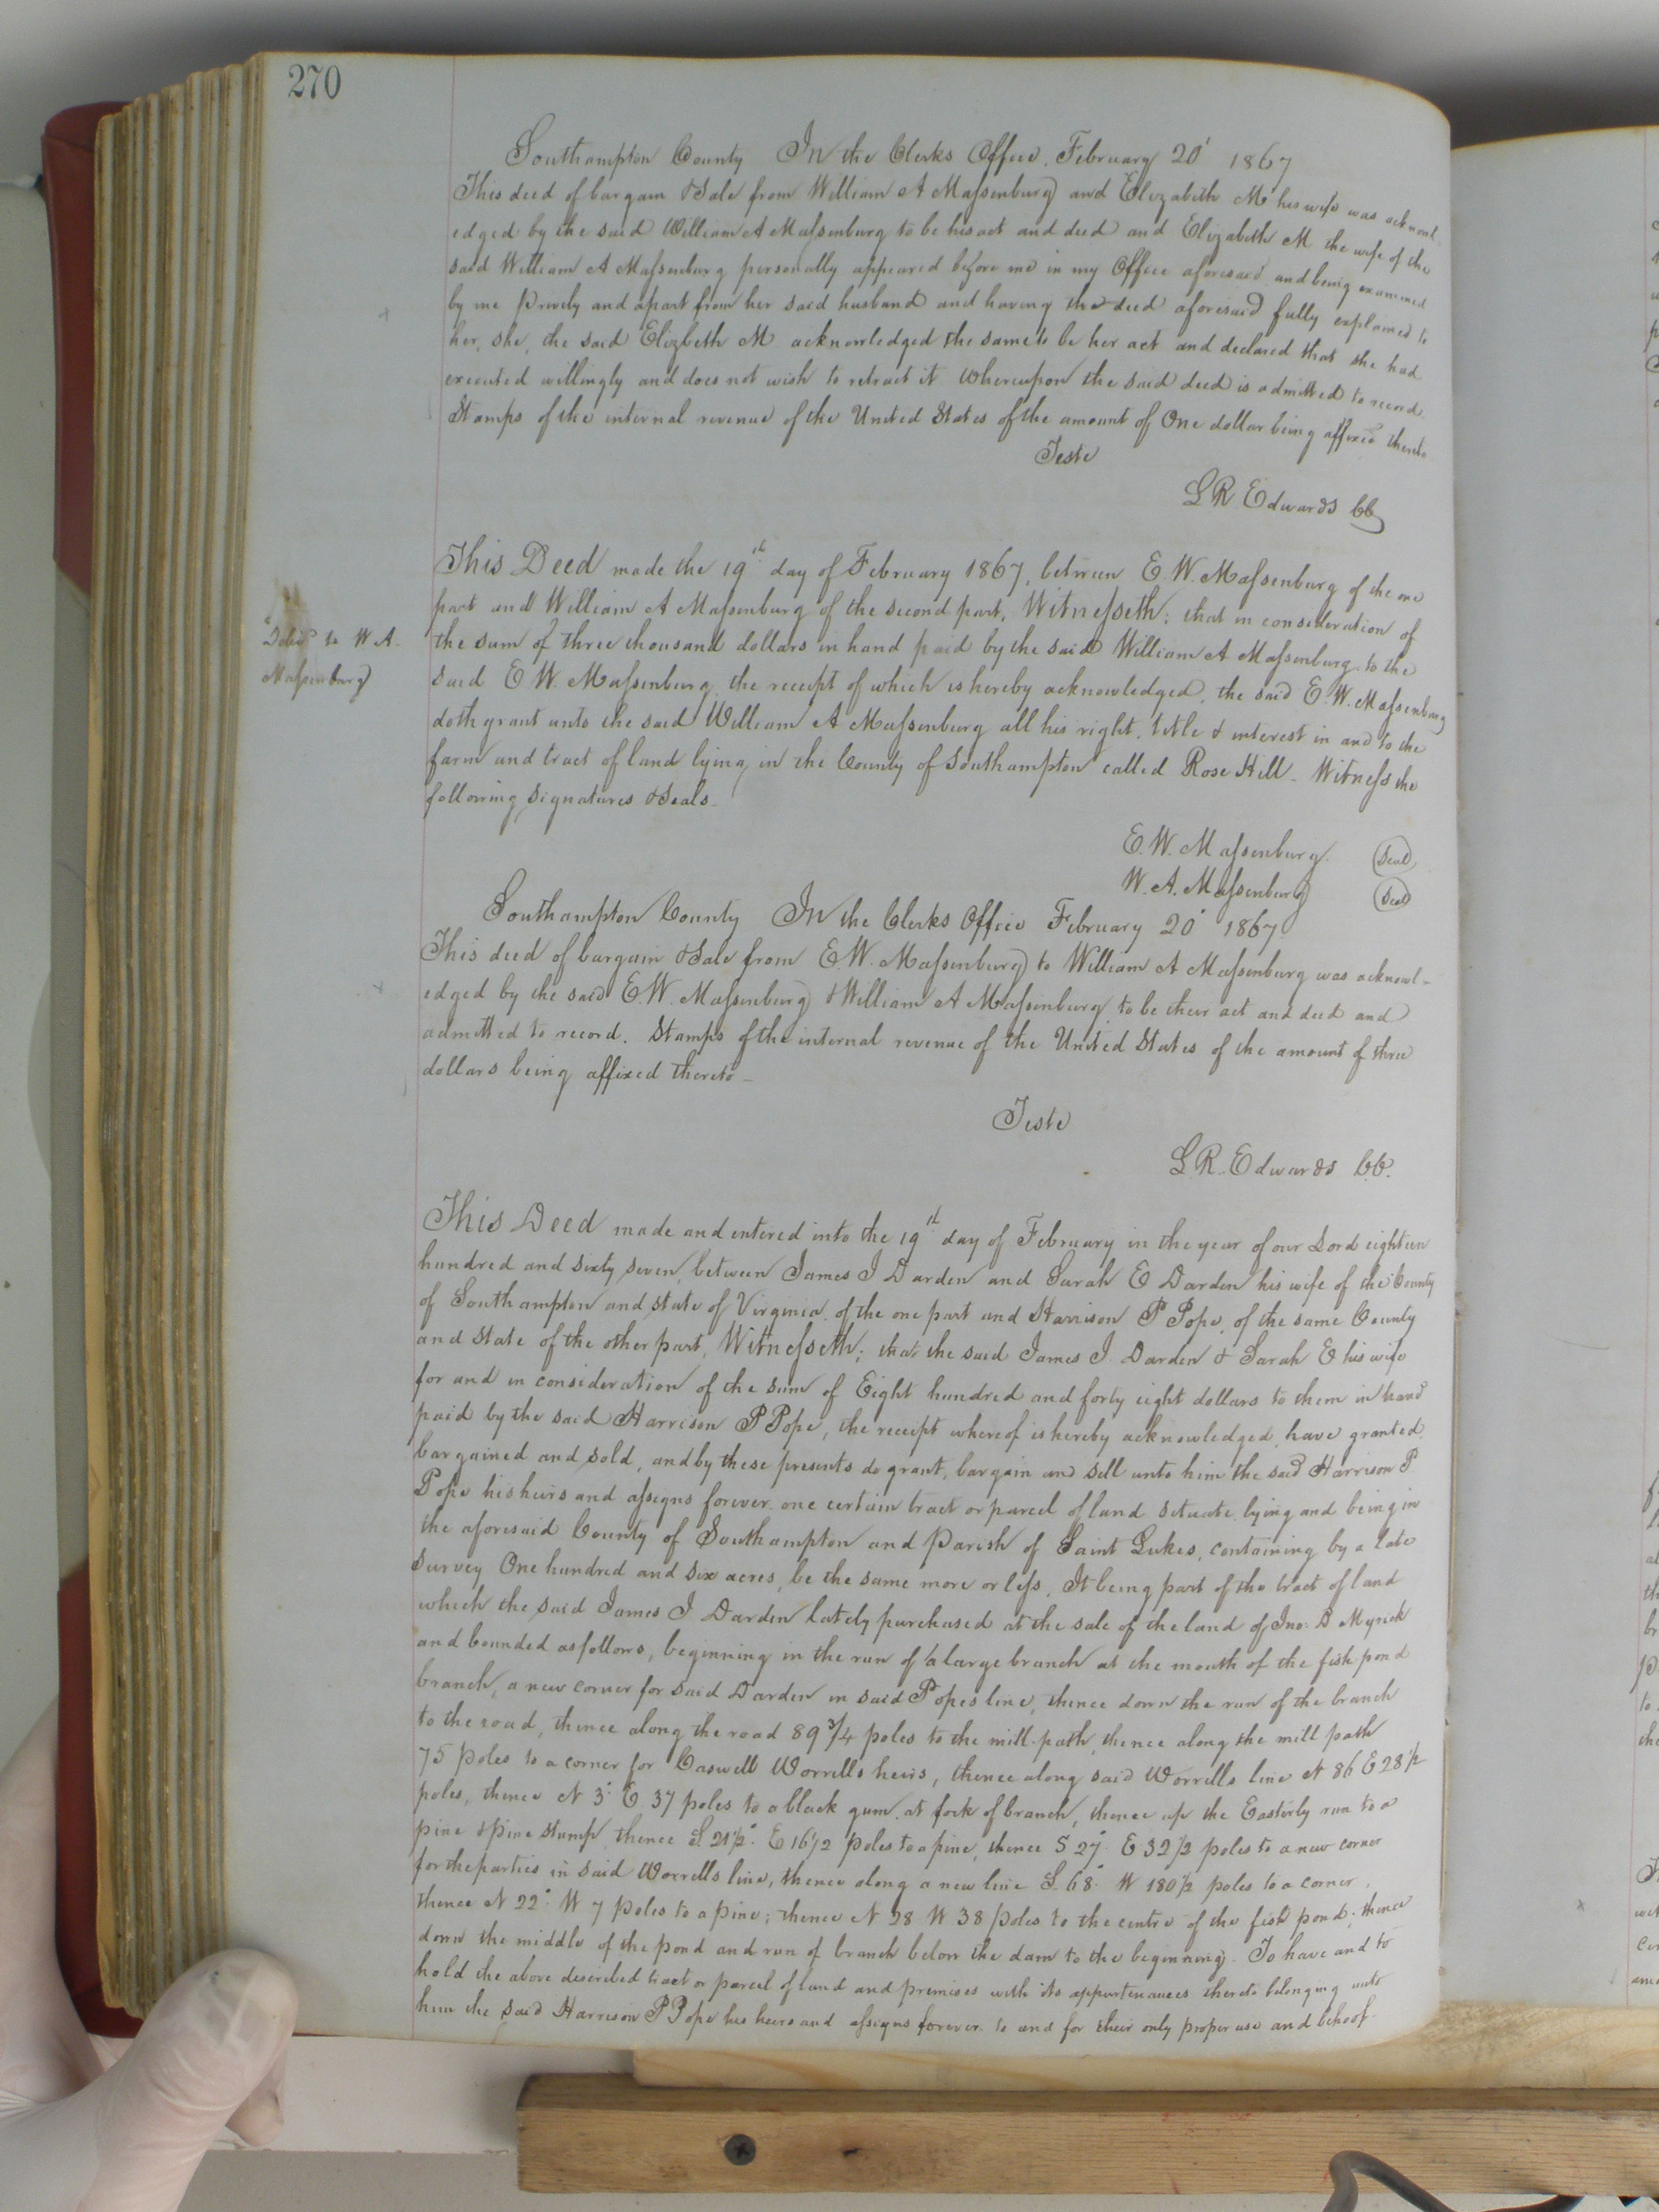 270
Southampton County In the Clerks Office, February 20' 1867
This deed of bargain & Sale from William A Massenburg and Elizabeth M his wife was acknowl
edged by the said William A Massenburg to be his act and deed and Elizabeth M the wife of the
said William A Massenburg personally appeared before me in my Office aforesaid and being examined
by me privily and apart from her said husband and having the deed aforesaid fully explained to
her, she, the said Elizbeth M acknowledged the same to be her act and declared that she had
executed willingly and does not wish to retract it Whereupon the said deed is admitted to record.
Stamps of the internal revenue of the United States of the amount of One dollar being affixed thereto
Teste
L R Edwards CC
This Deed made the 19th day of February 1867, between E. W. Massenburg of the one
part and William A Massenburg of the second part, Witnesseth; that in consideration of
Deliv'd to W A.
Massenburg
the sum of three thousand dollars in hand paid by the said William A Massenburg to the
said E W. Massenburg, the receipt of which is hereby acknowledged, the said E. W. Massenburg
doth grant unto the said William A Massenburg all his right, title & interest in and to the
farm and tract of land lying in the County of Southampton called Rose Hill - Witness the
following signatures & Seals -
E. W. Massenburg. Seal
W. A. Massenburg Seal
Southampton County In the Clerks Office February 20' 1867
This deed of bargain & Sale from E. W. Massenburg to William A Massenburg was acknowl-
edged by the said E W. Massenburg & William A Massenburg to be their act and deed and
admitted to record. Stamps of the internal revenue of the United States of the amount of three
dollars being affixed thereto -
Teste
L R. Edwards C.C.
This Deed made and entered into the 19th day of February in the year of our Lord eighteen
hundred and sixty seven, between James J Darden and Sarah E Darden his wife of the County
of Southampton and state of Virginia of the one part and Harrison P Pope, of the same County
and State of the other part, Witnesseth; that the said James J. Darden & Sarah E his wife
for and in consideration of the sum of Eight hundred and forty eight dollars to them in hand
paid by the said Harrison P Pope, the receipt whereof is hereby acknowledged, have granted,
bargained and sold, and by these presents do grant, bargain and sell unto him the said Harrison P
Pope his heirs and assigns forever one certain tract or parcel of land situate, lying and being in
the aforesaid County of Southampton and Parish of Saint Lukes, containing by a late
survey One hundred and six acres, be the same more or less. It being part of the tract of land
which the said James J Darden lately purchased at the sale of the land of Jno: D Myrick
and bounded as follows, beginning in the run of a large branch at the mouth of the fish pond
branch, a new corner for said Darden in said Popes line, thence down the run of the branch
to the road, thence along the road 89 3/4 poles to the mill path, thence along the mill path
75 poles to a corner for Caswell Worrells heirs, thence along said Worrells line N 86 E 28 1/2
poles, thence N 3° E 37 poles to a black gum at fork of branch, thence up the Easterly run to a
pine & pine stump thence S. 21 1/2° E 16 1/2 poles to a pine, thence S 27° E 32 1/2 poles to a new corner
for the parties in said Worrells line, thence along a new line S. 68° W 180 1/2 poles to a corner,
thence N 22° W 7 poles to a pine; thence N 28 W 38 poles to the centre of the fish pond; thence
down the middle of the pond and run of branch below the dam to the beginning. To have and to
hold the above described tract or parcel of land and premises with its appurtenances thereto belonging unto
him the said Harrison P Pope his heirs and assigns forever to and for their only proper use and behoof.